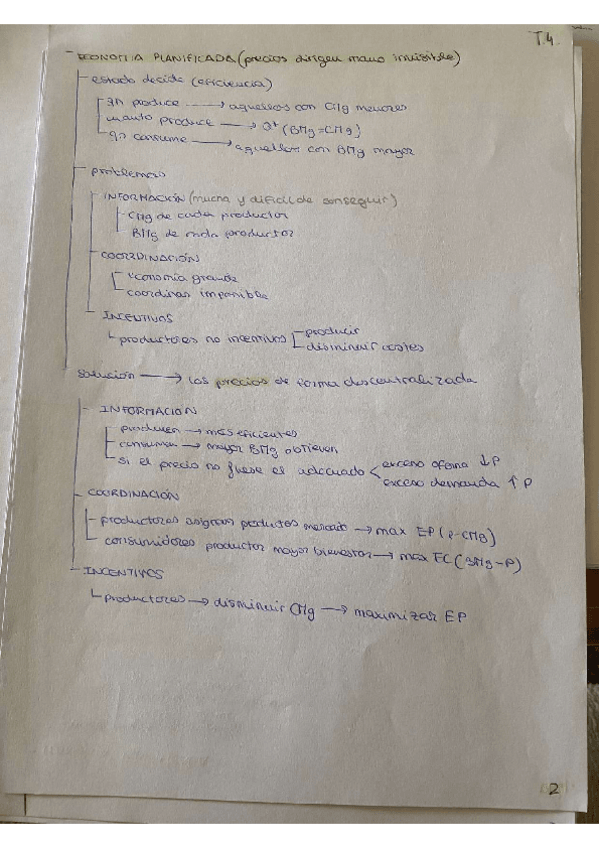 T.4.
ECONOMIA PLANIFICADA (precios dirigen mano invisible)
estado decide (eficiencia)
qn produce → aquellos con CMg menores
cuanto produce → Q* (BMg=CMg)
qn consume → aquellos con BMg mayor
problemas
INFORMACIÓN (mucha y dificil de conseguir)
CMg de cada productor
BMg de cada productor
COORDINACIÓN
economía grande
coordinar imposible
INCENTIVOS
productores no incentivos
producir
disminuir costes
solución → los precios de forma descentralizada
INFORMACION
producen → mas eficientes
consumen → mayor BMg obtienen
si el precio no fuese el adecuado
exceso oferta ↓P
exceso demanda ↑P
COORDINACIÓN
productores asignan productos mercado → max EP (P-CMg)
consumidores productor mayor bienestar → max EC (BMg-P)
INCENTIVOS
productores → disminuir CMg → maximizar EP
2